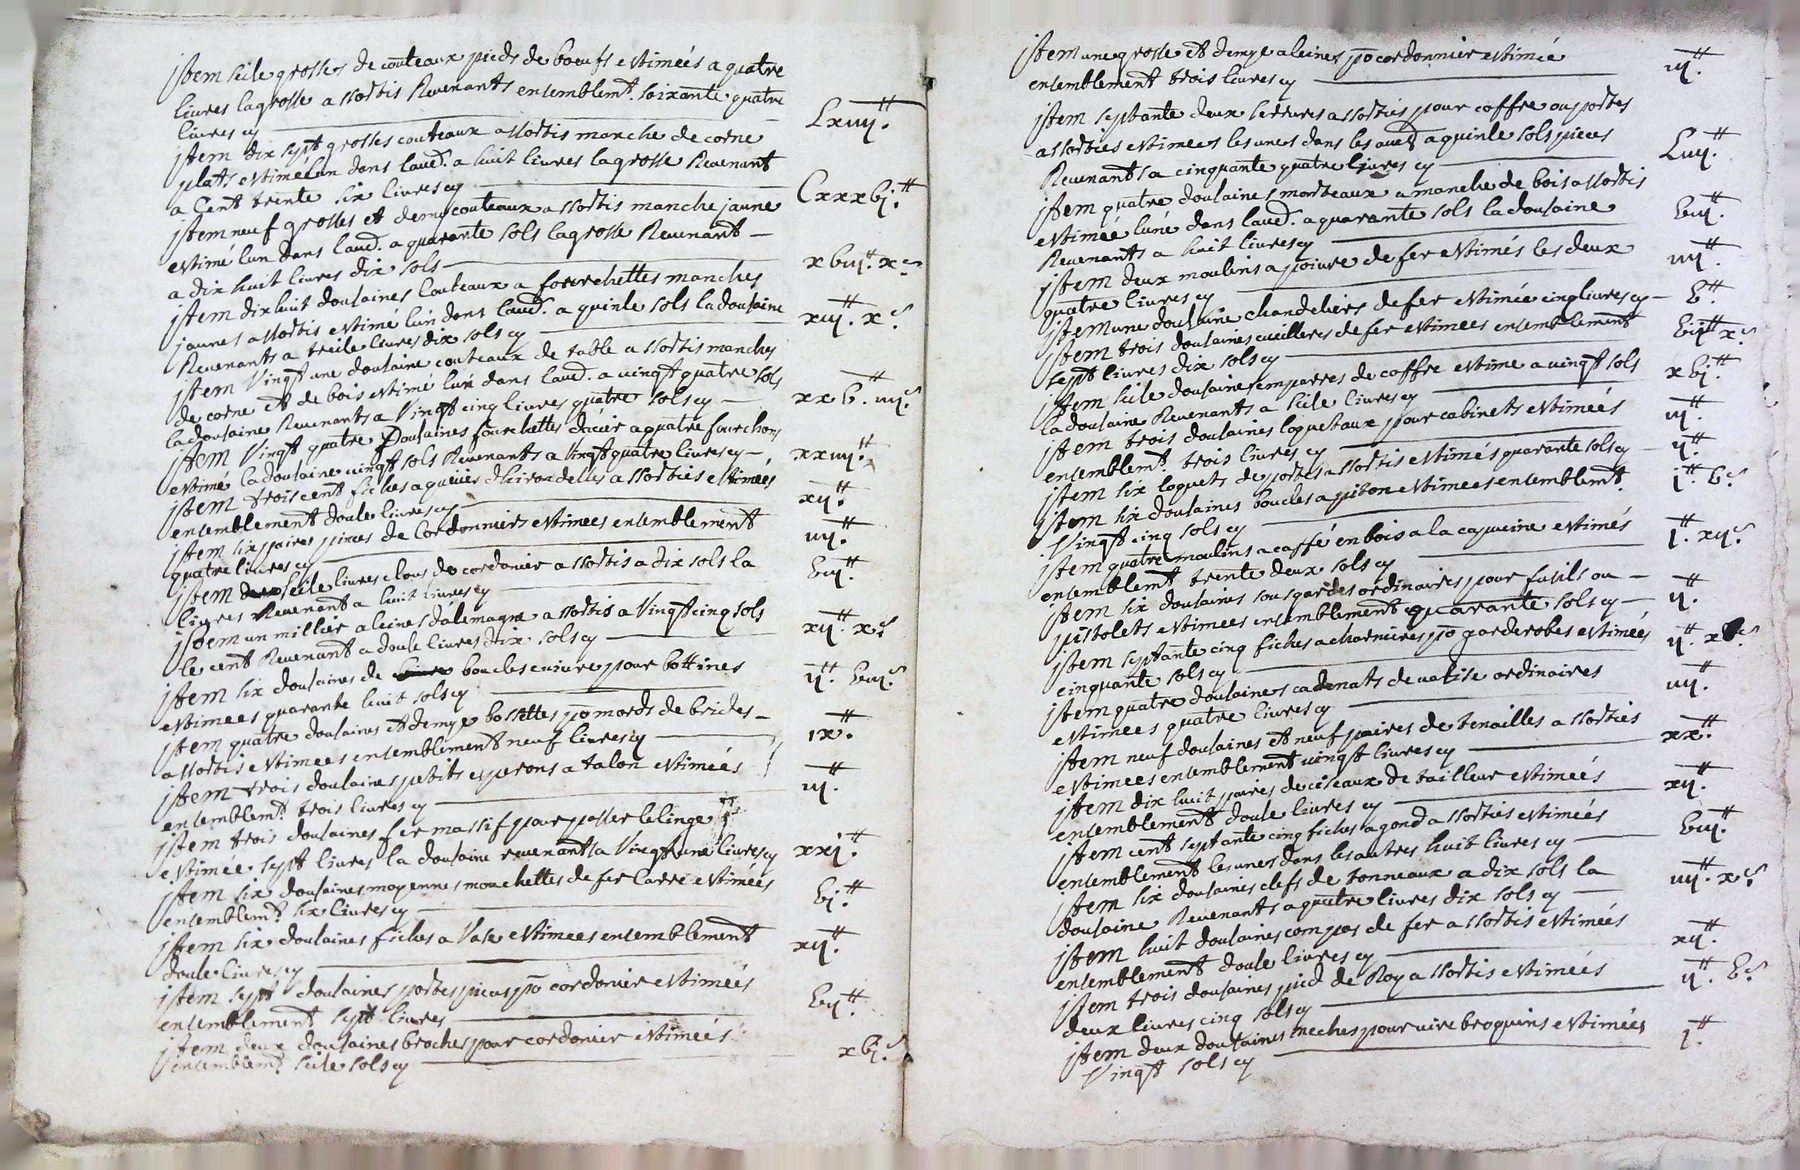 jtem seize grosses de couteaux pieds de boeufs estimées a quatre
livres la grosse assortis Revenants ensemblemt. soixante quatre
livres cy Lxiiij.tt
jtem dix sept grosses couteaux assortis manche de corne
plats estimé lun dans laud. a huit livres la grosse Revenant
a Cent trente six livres cy Cxxxvj.tt
jtem neuf grosses et demy couteaux assortis manche jaune
estimé lun dans laud. a quarante sols la grosse Revenant
a dix huit livres dix sols xviij.tt x.s
jtem dix huit douzaines Couteaux a fourchettes manches
jaunes assortis estimé lun dans laud. a quinze sols la douzaine
Revenants a treize livres dix sols cy xiij.tt x.s
jtem Vingt une douzaine couteaux de table assortis manches
de corne et de bois estimé lun dans laud. a vingt quatre sols
la douzaines Revenants a Vingt cinq livres quatre sols cy xxv.tt iiij.s
jtem Vingt quatre Douzaines fourchettes dacier a quatre fourchons
estimé la douzaine vingt sols Revenants a Vingt quatre livres cy xxiiij.tt
jtem trois cent fiches a queues dhirondelles assorties estimées
ensemblement douze livres cy xij.tt
jtem six paires pinces de Cordonniers estimees ensemblement
quatre livres cy iiij.tt
jtem seize livres clous de cordonier assortis a dix sols la
livres Revenant a huit livres cy viij.tt
jtem un millier aleines dalemagne assortis a Vingt cinq sols
le cent Revenant a douze livres dix sols cy xij.tt x.s
jtem six douzaines de boucles cuivre pour bottines
estimees quarante huit sols cy ij.tt viij.s
jtem quatre douzaines et demye bossettes po mords de brides
assortis estimees ensemblement neuf livres cy ix.tt
jtem trois douzaines petits esperons a talon estimées
ensemblemt. trois livres cy iij.tt
jtem trois douzaines fer massif pour passer le linge
estimée sept livres la douzaine revenants a Vingt une livres cy xxj.tt
jtem six douzaines moyennes mouchettes de fer Carré estimées
ensemblemt. six livres cy vj.tt
jtem six douzaines fiches a Vase estimees ensemblement
douze livres cy xij.tt
jtem sept douzaines portes pieces po cordonier estimées
ensemblement sept livres vij.tt
jtem deux douzaines broches pour cordonier estimées
ensemblemt. seize sols cy xvj.s
jtem une grosse et demye aleines po cordonnier estimée
ensemblement trois livres cy iij.tt
jtem septante deux serrures assorties pour coffre ou portes
assorties estimees les unes dans les aues a quinze sols pieces
Revenants a cinquante quatre livres cy Liiij.tt
jtem quatre douzaines marteaux a manche de bois assortis
estimée luné dans laud. a quarante sols la douzaine
Revenants a huit livres cy viij.tt
jtem deux moulins a poivre de fer estimés les deux
quatre livres cy iiij.tt
jtem une douzaine chandeliers de fer estimée cinq livres cy v.tt
jtem trois douzaines cuilleres de fer estimees ensemblement
sept livres dix sols cy vij.tt x.s
jtem seize douzaines emparres de coffre estimé a vingt sols
la douzaine Revenants a seize livres cy xvj.tt
jtem trois douzaines loquetaux pour cabinets estimées
ensemblemt. trois livres cy iij.tt
jtem six loquets de portes assortis estimés quarante sols cy ij.tt
jtem six douzaines boucles a piton estimees ensemblemt.
Vingt cinq sols cy j.tt v.s
jtem quatre moulins a caffé en bois a la capucine estimés
ensemblemt. trente deux sols cy j.tt xij.s
jtem six douzaines sous gardes ordinaires pour fusils ou
pistolets estimees ensemblement quarante sols cy ij.tt
jtem septante cinq fiches a charnieres po garderobes estimées
cinquante sols cy ij.tt x.s
jtem quatre douzaines cadenats de valise ordinaires
estimees quatre livres cy iiij.tt
jtem neuf douzaines et neuf paires de tenailles assorties
estimees ensemblement vingt livres cy xx.tt
jtem dix huit paires de ciseaux de tailleur estimées
ensemblement douze livres cy xij.tt
jtem cent septante cinq fiches a gond assorties estimées
ensemblement les unes dans les autres huit livres cy viij.tt
jtem six douzaines clefs de tonneaux a dix sols la
douzaine Revenants a quatre livres dix sols cy iiij.tt x.s
jtem huit douzaines compas de fer assortis estimées
ensemblement douze livres cy xij.tt
jtem trois douzaines pied de Roy assortis estimées
deux livres cinq sols cy ij.tt v.s
jtem deux douzaines meches pour vire broquins estimées
Vingt sols cy j.tt